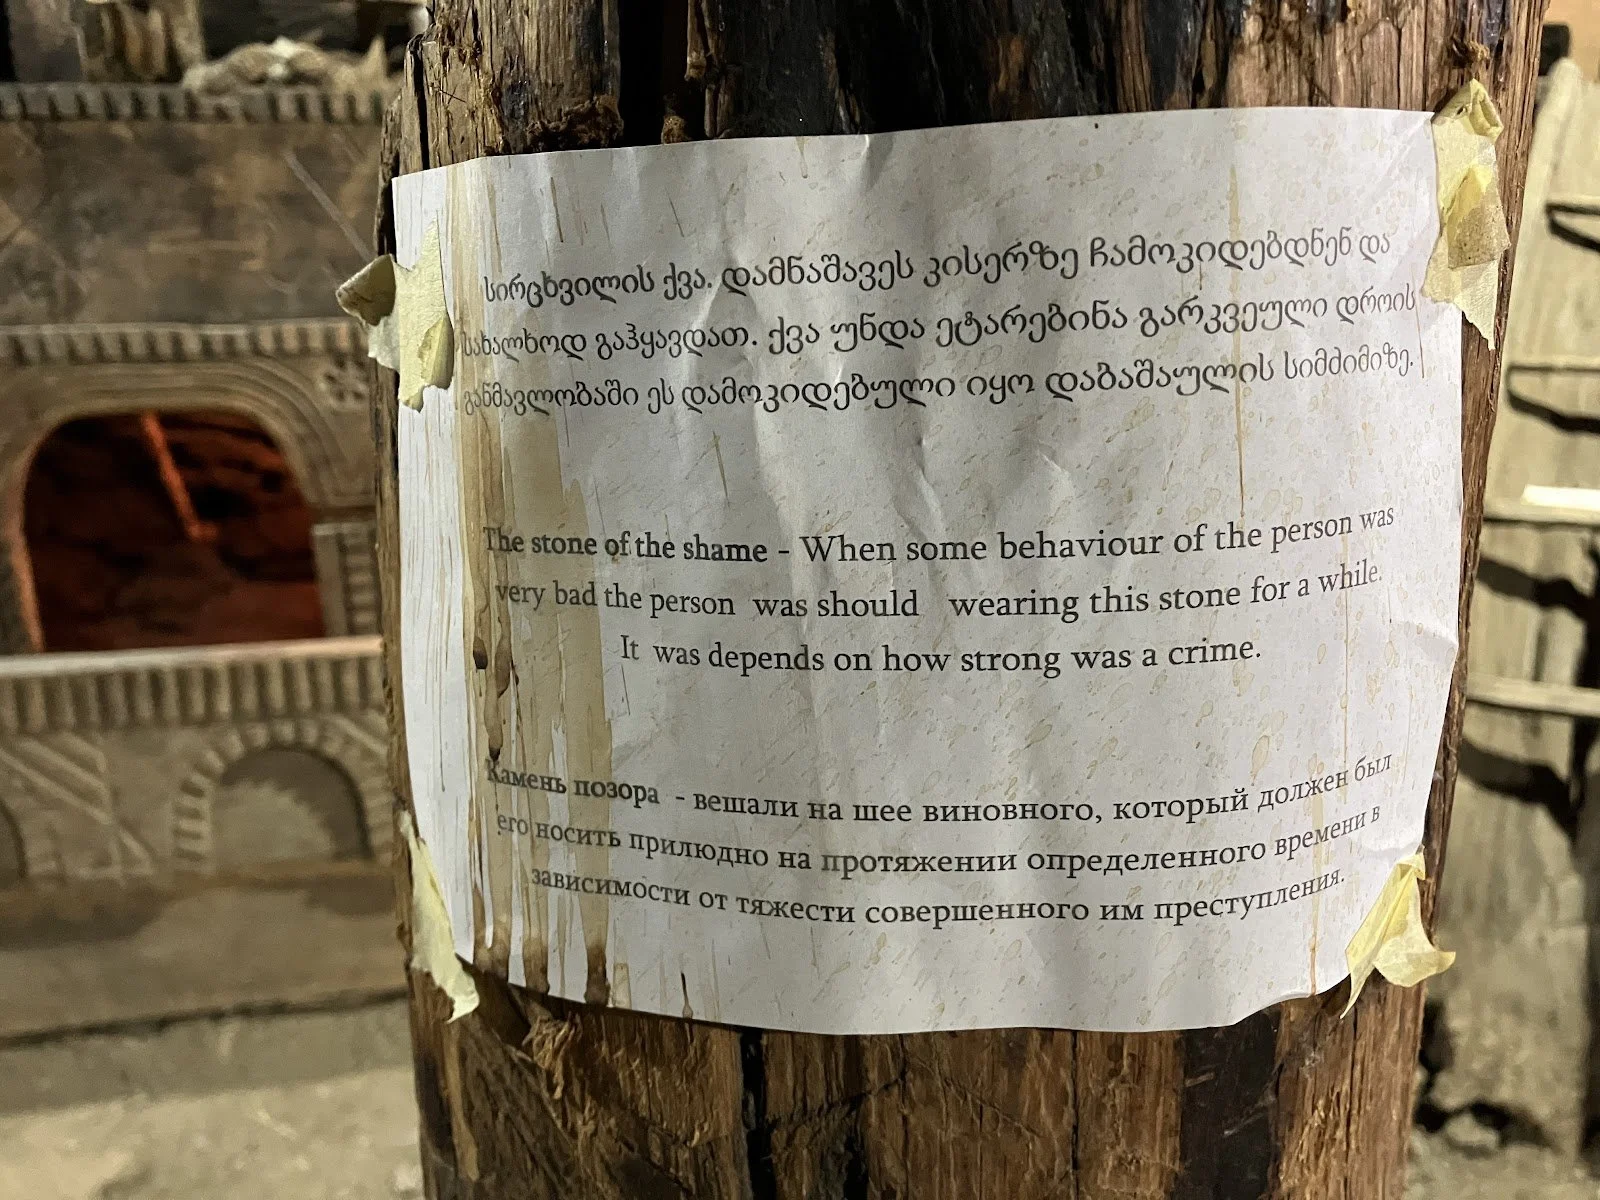 სირცხვილის ქვა. დამნაშავეს კისერზე ჩამოკიდებდნენ და
სახალხოდ გაჰყავდათ. ქვა უნდა ეტარებინა გარკვეული დროის
განმავლობაში ეს დამოკიდებული იყო დაბაშაულის სიმძიმიზე.
The stone of the shame - When some behaviour of the person was
very bad the person was should wearing this stone for a while.
It was depends on how strong was a crime.
Камень позора - вешали на шее виновного, который должен был
его носить прилюдно на протяжении определенного времени в
зависимости от тяжести совершенного им преступления.